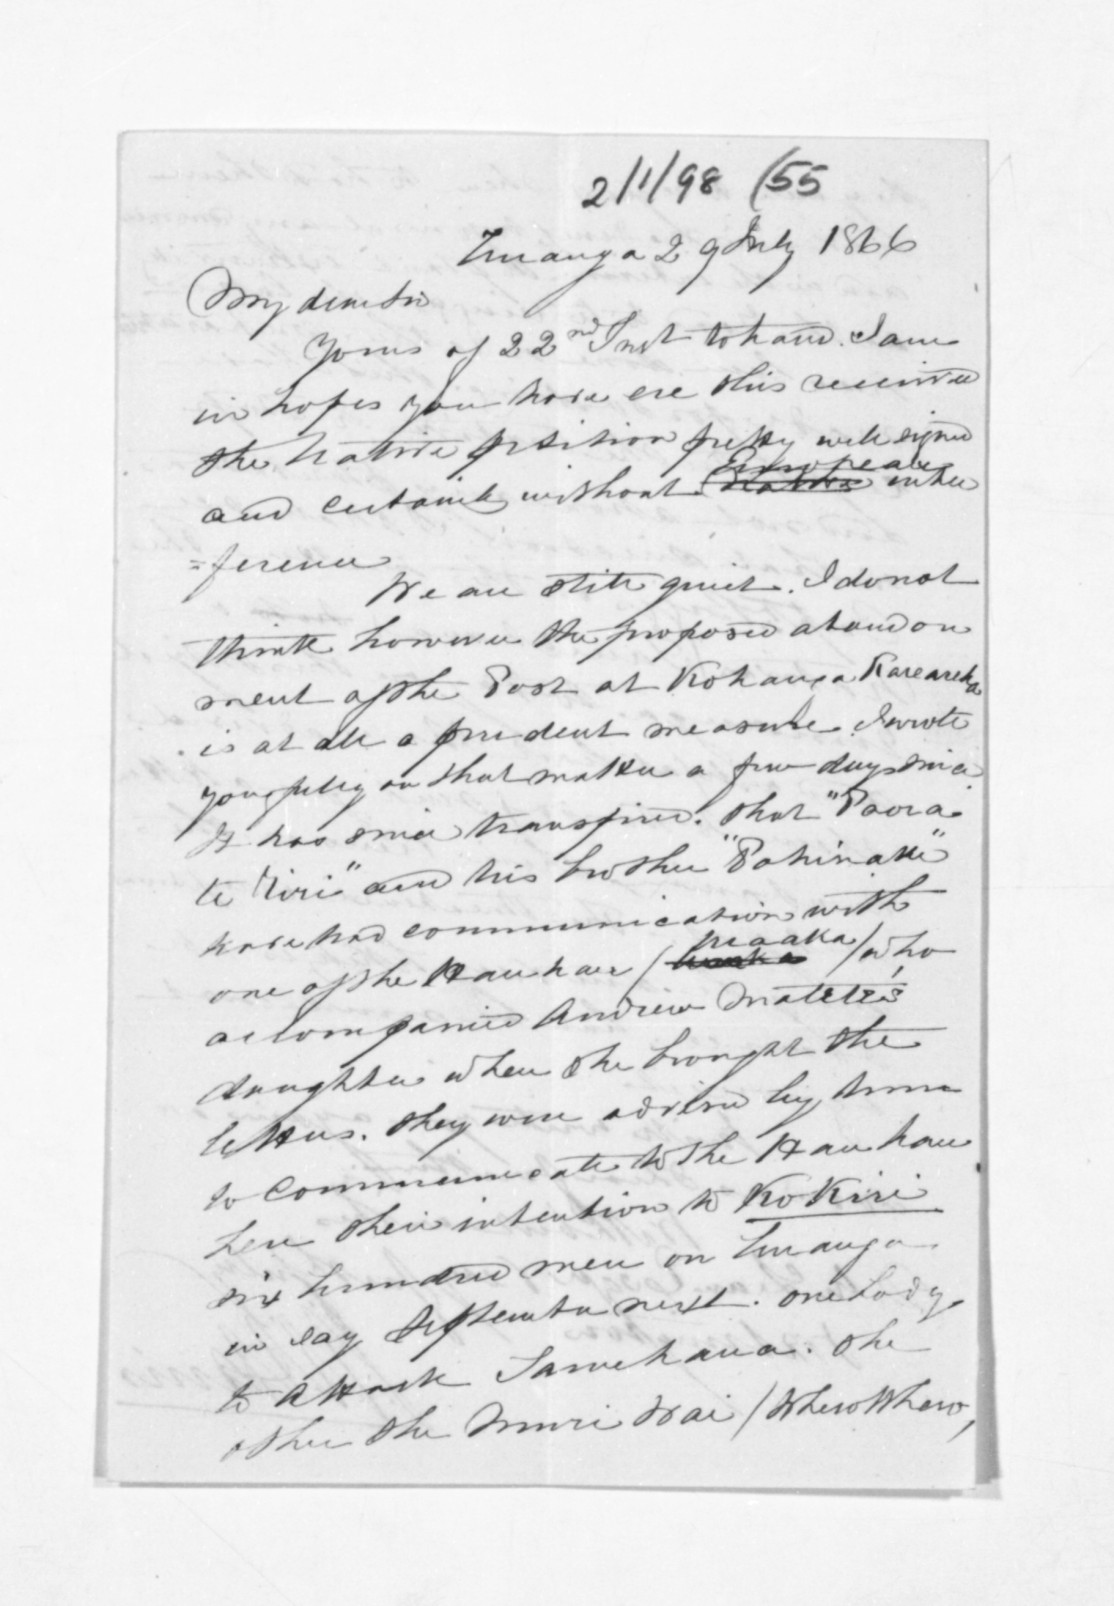 2/1/98 (55
Turanga 29 July 1866
My dear Sir
Yours of 22nd Inst to hand. I am
in hopes you have ere this received
the Native petition pretty well signed
and certainly without European inter
=ference
We are still quiet. I do not
think however the proposed abandon
ment of the Post at Kohanga Karearea
is at all a prudent measure. I wrote
you fully on that matter a few days since
It has since transpired. that "Paora
te Kiri" and his brother "Pahinake"
have had communication with
one of the Hau haus (Piraaka) who
accompanied Andrew Matete's
daughter when she brought the
letters. they were advised by him
to communicate to the Hau hau
here their intention to KoKiri
six hundred men on Turanga
in say September next. one body
to attack Tamehana. the
other the Muri Wai (Whero Whero,